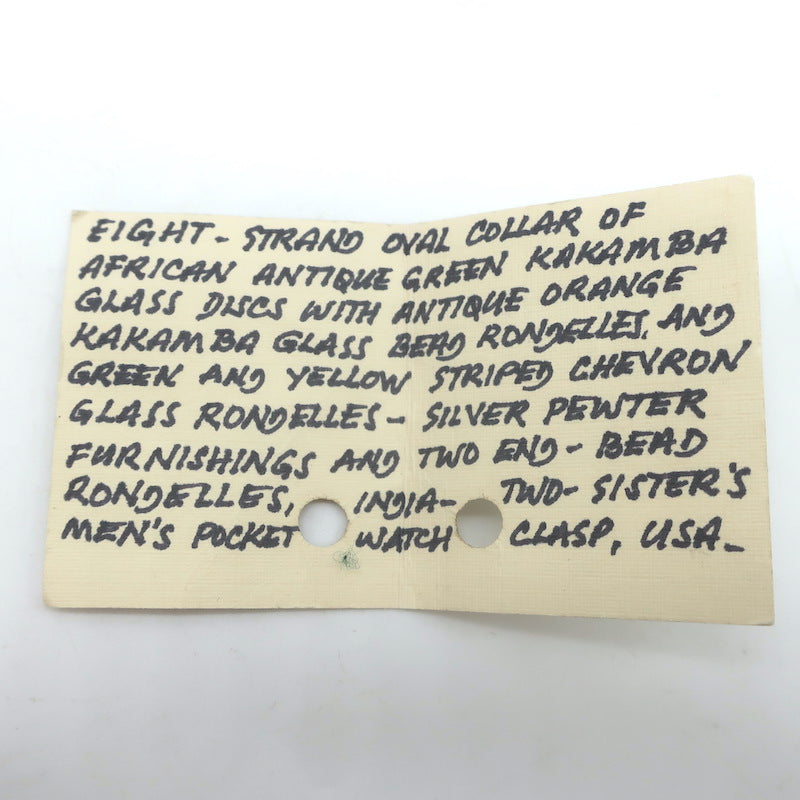 EIGHT- STRAND OVAL COLLAR OF
AFRICAN ANTIQUE GREEN KAKAMBA
GLASS DISCS WITH ANTIQUE ORANGE
KAKAMBA GLASS BEAD RONDELLES, AND
GREEN AND YELLOW STRIPED CHEVRON
GLASS RONDELLES - SILVER PEWTER
FURNISHINGS AND TWO END- BEAD
RONDELLES, INDIA- TWO- SISTER'S
MEN'S POCKET WATCH CLASP, USA-